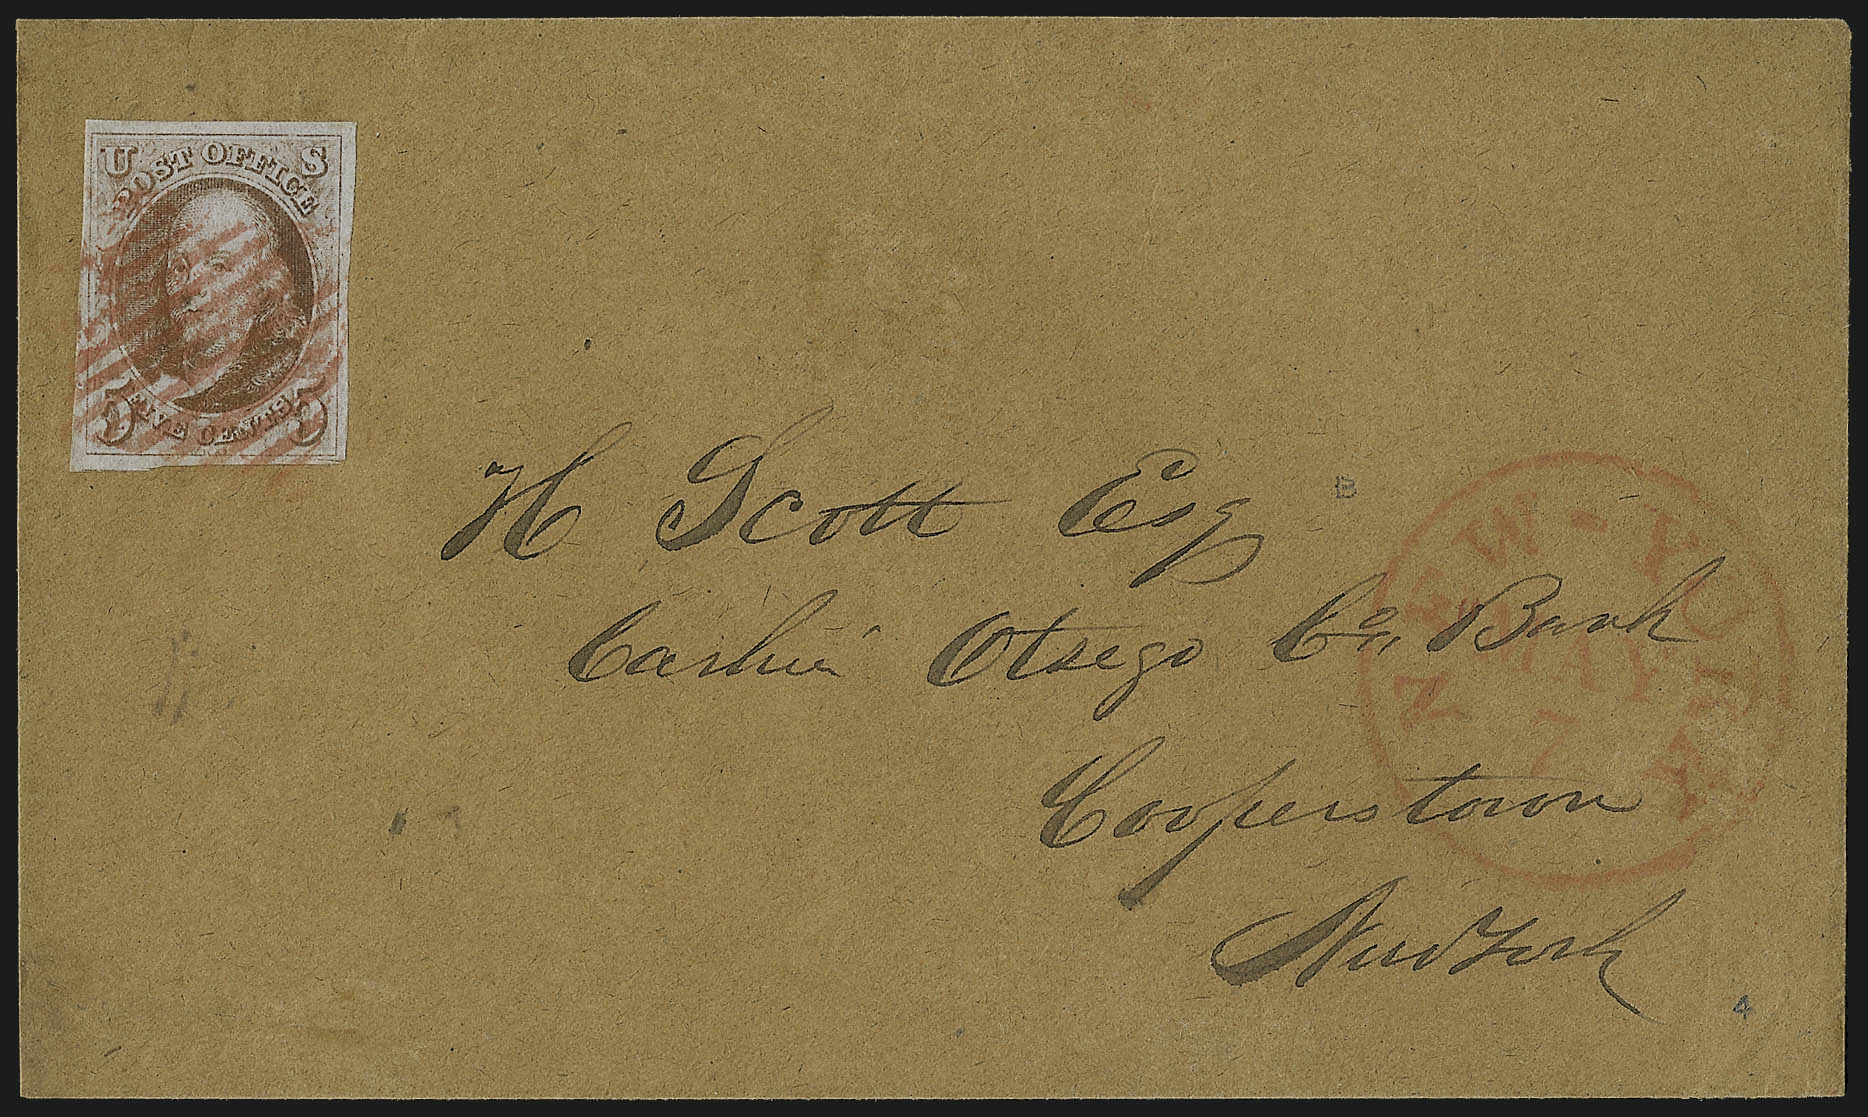 U S
POST OFFICE
5 FIVE CENTS 5
H Scott Esq
B
Cashier Otsego Co. Bank
Cooperstown
New York
NEW-YORK
MAY
7
N.Y.
4